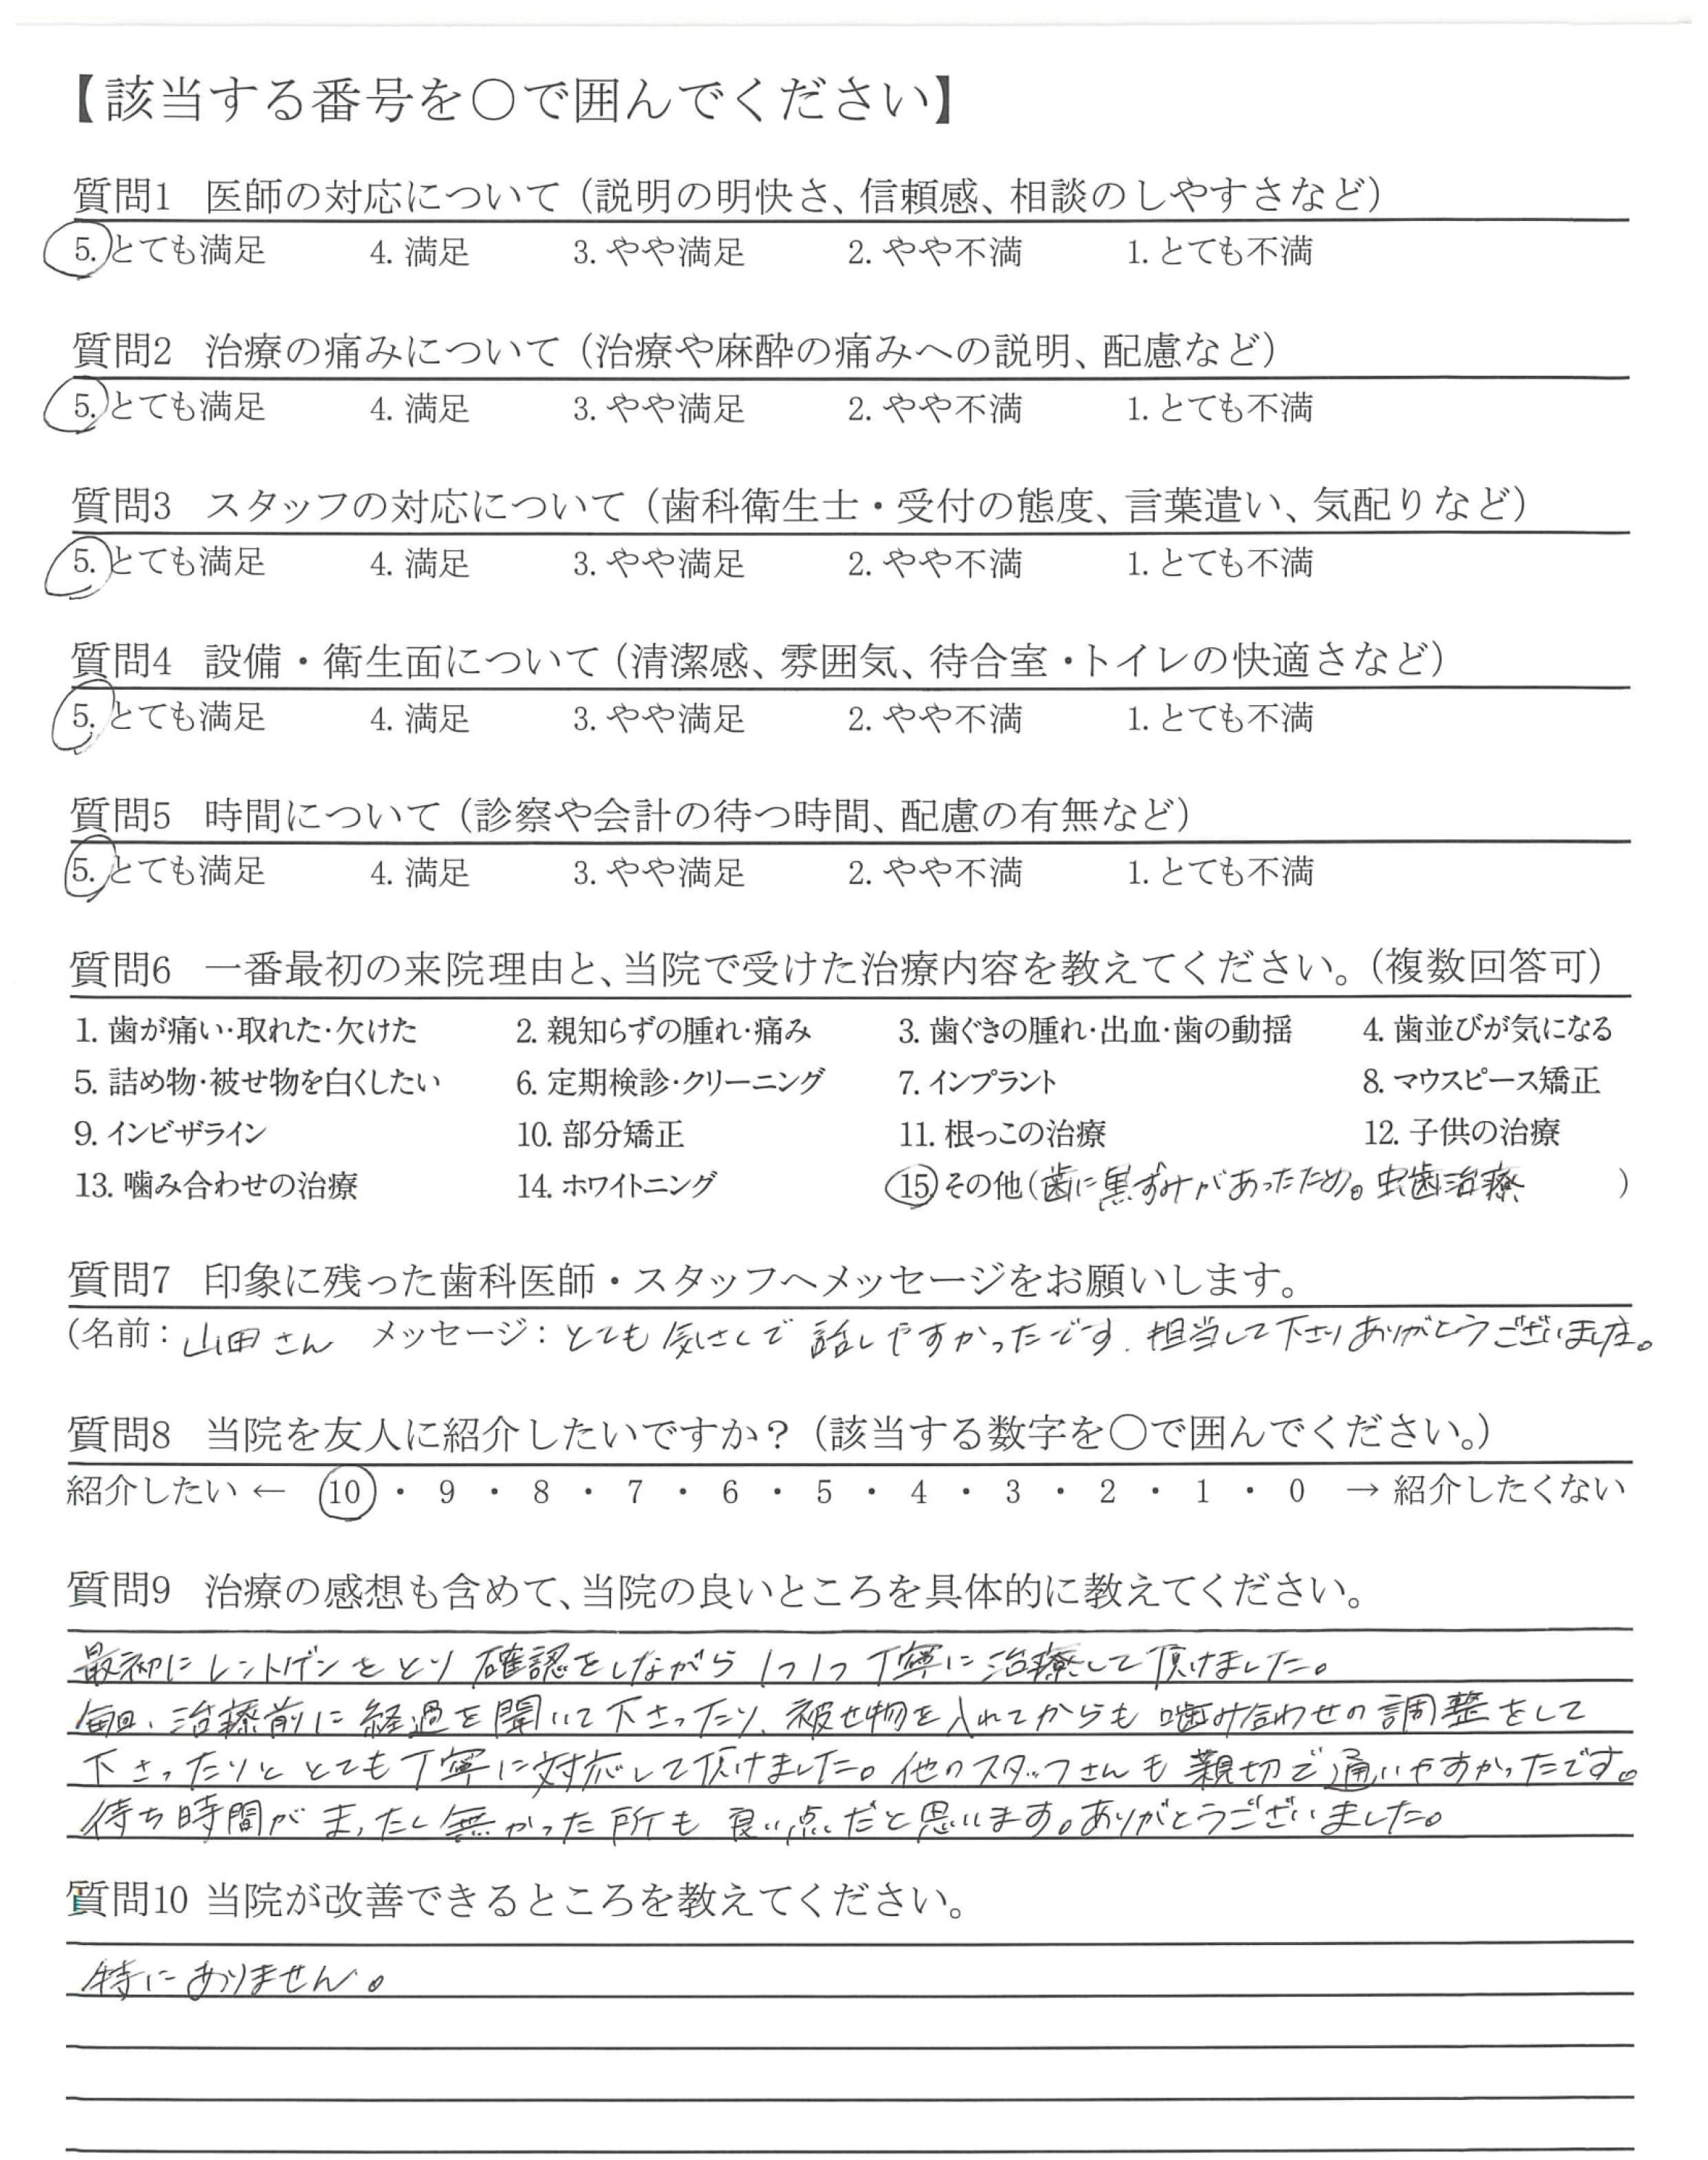 【該当する番号を○で囲んでください】
質問1 医師の対応について（説明の明快さ、信頼感、相談のしやすさなど）
5. とても満足 4. 満足 3. やや満足 2. やや不満 1. とても不満
質問2 治療の痛みについて（治療や麻酔の痛みへの説明、配慮など）
5. とても満足 4. 満足 3. やや満足 2. やや不満 1. とても不満
質問3 スタッフの対応について（歯科衛生士・受付の態度、言葉遣い、気配りなど）
5. とても満足 4. 満足 3. やや満足 2. やや不満 1. とても不満
質問4 設備・衛生面について（清潔感、雰囲気、待合室・トイレの快適さなど）
5. とても満足 4. 満足 3. やや満足 2. やや不満 1. とても不満
質問5 時間について（診察や会計の待つ時間、配慮の有無など）
5. とても満足 4. 満足 3. やや満足 2. やや不満 1. とても不満
質問6 一番最初の来院理由と、当院で受けた治療内容を教えてください。（複数回答可）
1. 歯が痛い・取れた・欠けた 2. 親知らずの腫れ・痛み 3. 歯ぐきの腫れ・出血・歯の動揺 4. 歯並びが気になる
5. 詰め物・被せ物を白くしたい 6. 定期検診・クリーニング 7. インプラント 8. マウスピース矯正
9. インビザライン 10. 部分矯正 11. 根っこの治療 12. 子供の治療
13. 噛み合わせの治療 14. ホワイトニング 15 その他（歯に黒ずみがあったため。虫歯治療 ）
質問7 印象に残った歯科医師・スタッフへメッセージをお願いします。
（名前：山田さん メッセージ：とても気さくで話しやすかったです。担当して下さりありがとうございました。
質問8 当院を友人に紹介したいですか？（該当する数字を○で囲んでください。）
紹介したい ← 10 ・ 9 ・ 8 ・ 7 ・ 6 ・ 5 ・ 4 ・ 3 ・ 2 ・ 1 ・ 0 → 紹介したくない
質問9 治療の感想も含めて、当院の良いところを具体的に教えてください。
最初にレントゲンをとり確認をしながら1つ1つ丁寧に治療して頂けました。
毎回、治療前に経過を聞いて下さったり、被せ物を入れてからも噛み合わせの調整をして
下さったりととても丁寧に対応して頂けました。他のスタッフさんも親切で通いやすかったです。
待ち時間がまったく無かった所も良い点だと思います。ありがとうございました。
質問10 当院が改善できるところを教えてください。
特にありません。